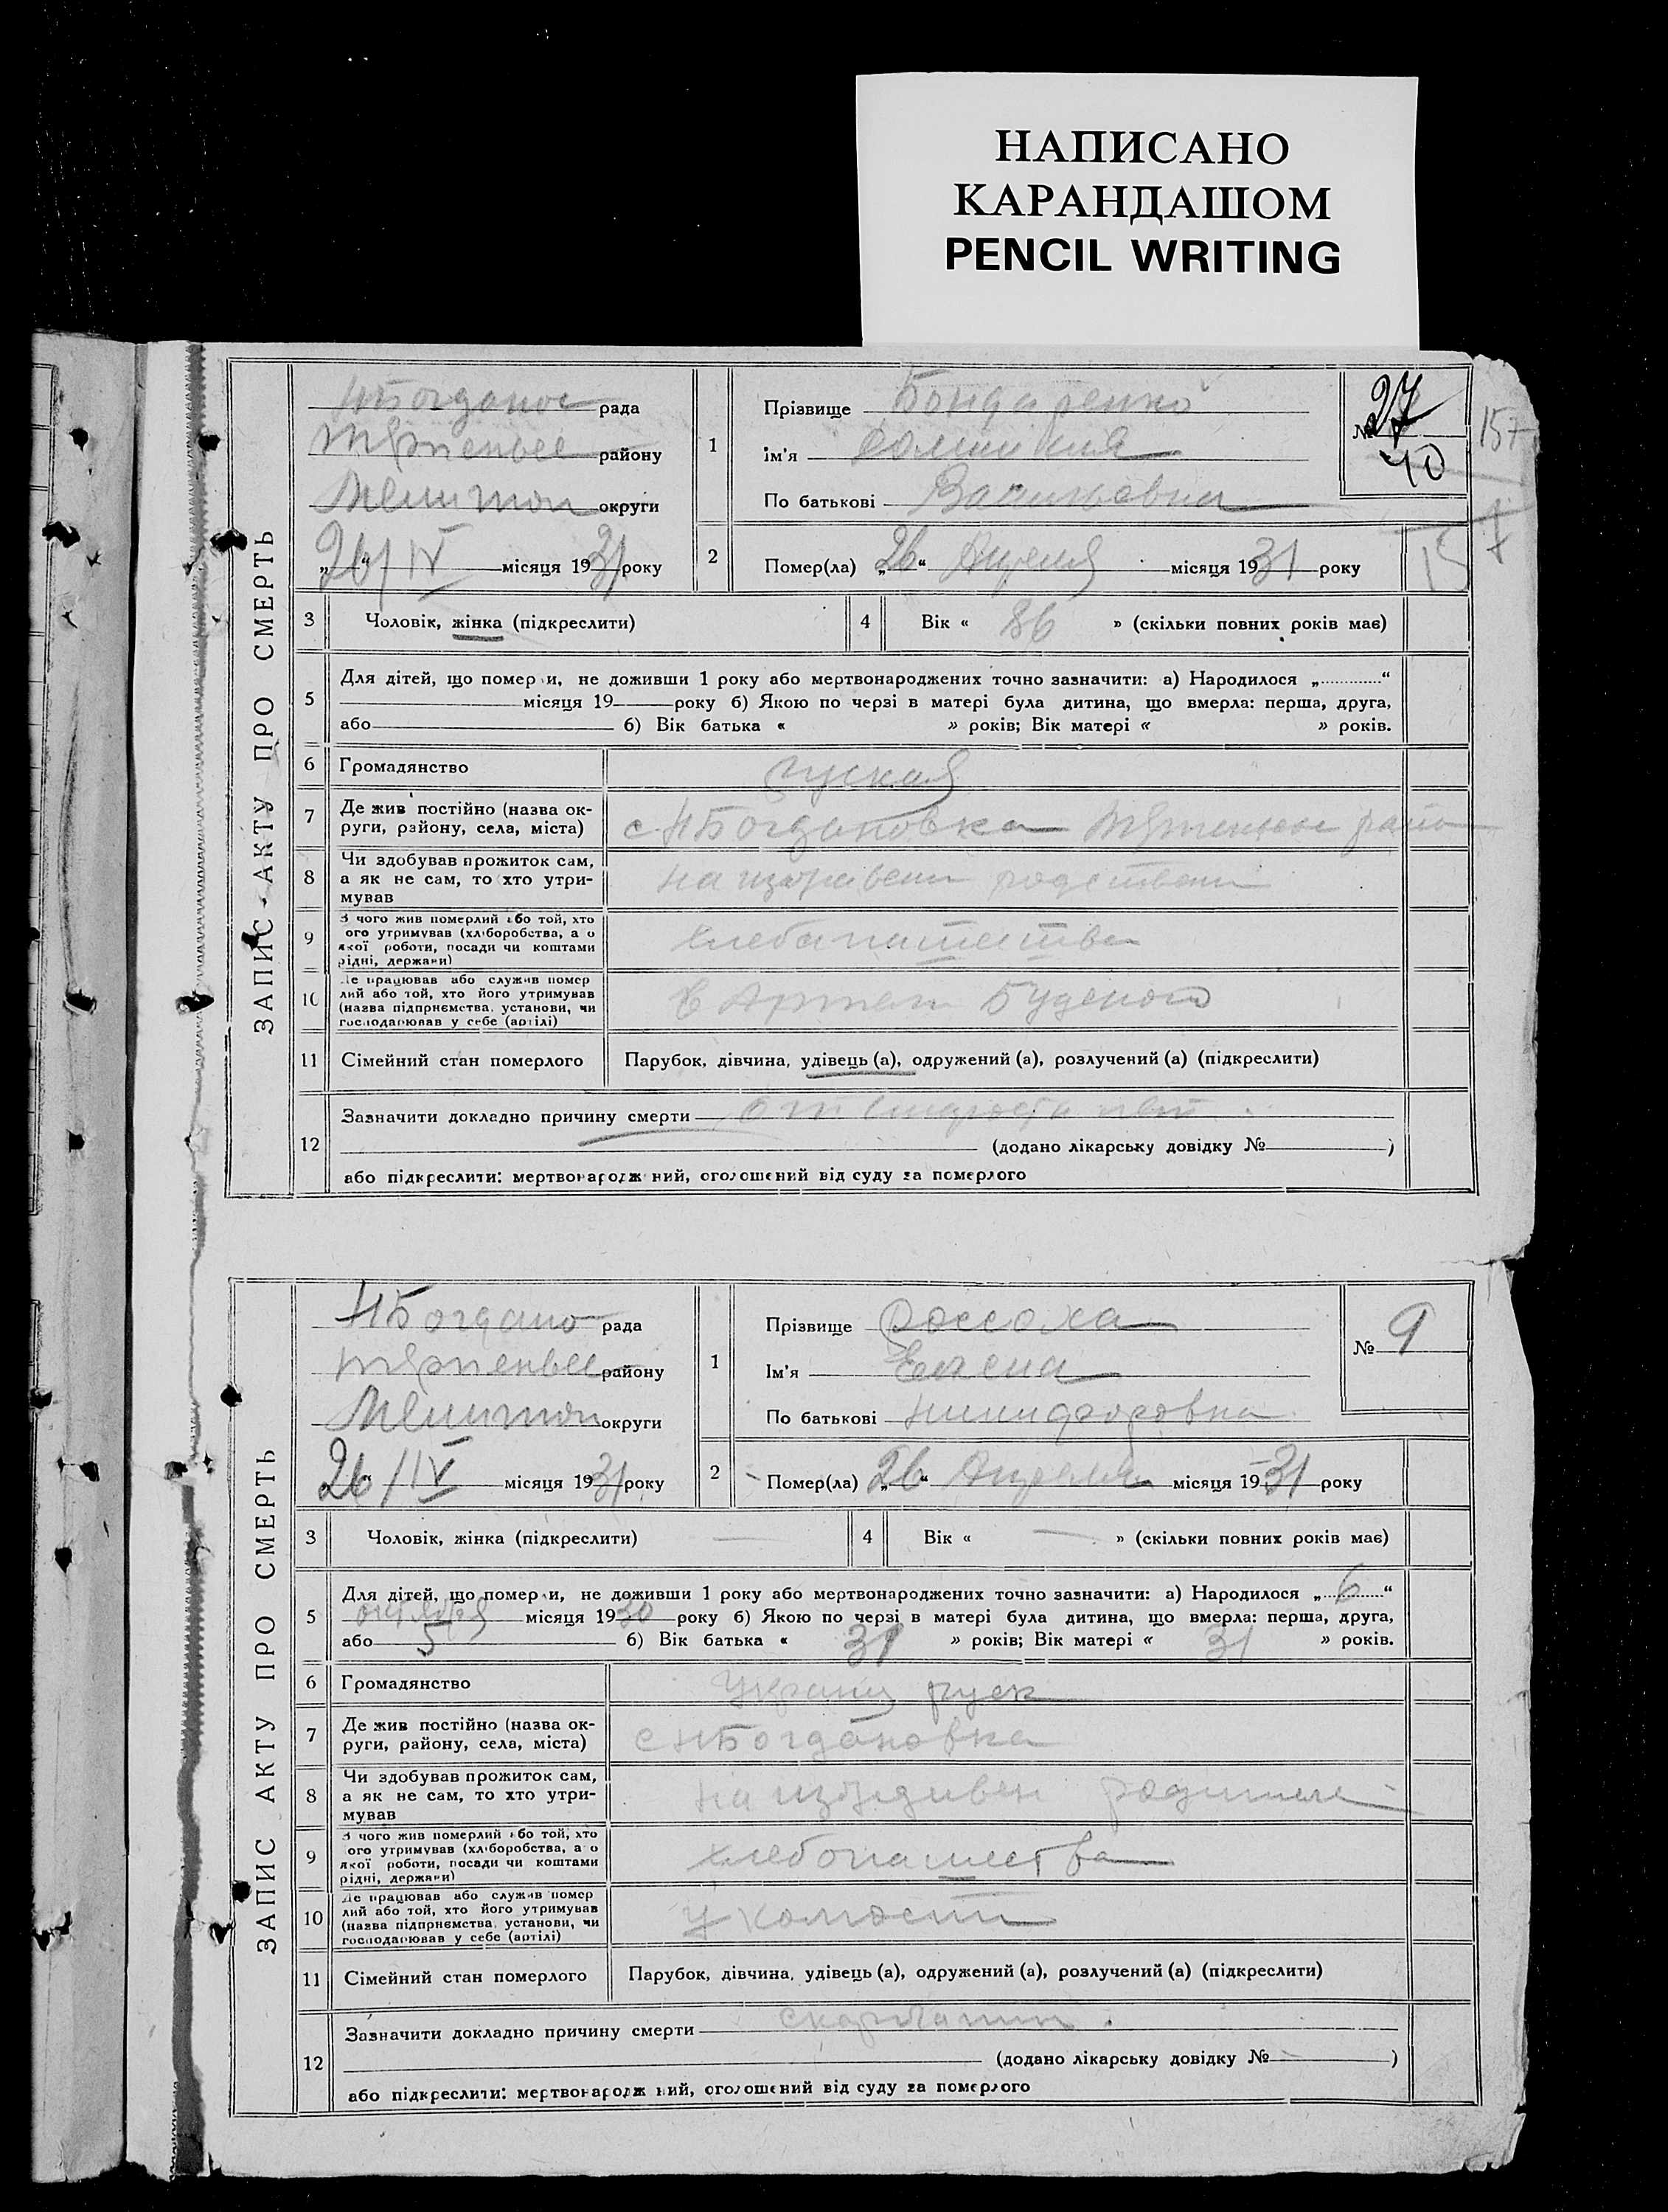 НАПИСАНО
КАРАНДАШОМ
PENCIL WRITING
ЗАПИС АКТУ ПРО СМЕРТЬ
рада
району
округи
26/IV місяця 1931 року
1
Прізвище Бондаренко
Ім'я
По батькові Васильевна
№ 27
40
157
2
Помер(ла) „26“ Апреля місяця 1931 року
157
3
Чоловік, жінка (підкреслити)
4
Вік « 86 » (скільки повних років має)
5
Для дітей, що помер и, не доживши 1 року або мертвонароджених точно зазначити: а) Народилося „ “
місяця 19 року б) Якою по черзі в матері була дитина, що вмерла: перша, друга,
або б) Вік батька « » років; Вік матері « » років.
6
Громадянство руская
7
Де жив постійно (назва ок-
руги, району, села, міста)
с. НБогдановка
8
Чи здобував прожиток сам,
а як не сам, то хто утри-
мував
9
З чого жив померлий або той, хто
ого утримував (хліборобства, а о
якої роботи, посади чи коштами
рідні, держави)
10
Де працював або служив помер
лий або той, хто його утримував
(назва підприємства, установи, чи
господарював у себе (артілі)
в Артели Буденого
11
Сімейний стан померлого
Парубок, дівчина, удівець (а), одружений (а), розлучений (а) (підкреслити)
12
Зазначити докладно причину смерти от
(додано лікарську довідку № )
або підкреслити: мертвонародж ний, оголошений від суду за померлого
ЗАПИС АКТУ ПРО СМЕРТЬ
НБогдано рада
району
округи
26/IV місяця 1931 року
1
Прізвище Россоха
Ім'я Елена
По батькові Никифоровна
№ 9
2
Помер(ла) „26“ Апреля місяця 1931 року
3
Чоловік, жінка (підкреслити)
4
Вік « — » (скільки повних років має)
5
Для дітей, що помер и, не доживши 1 року або мертвонароджених точно зазначити: а) Народилося „6“
октября місяця 1930 року б) Якою по черзі в матері була дитина, що вмерла: перша, друга,
або 5 б) Вік батька « 31 » років; Вік матері « 31 » років.
6
Громадянство
7
Де жив постійно (назва ок-
руги, району, села, міста)
с НБогдановка
8
Чи здобував прожиток сам,
а як не сам, то хто утри-
мував
на родителей
9
З чого жив померлий або той, хто
ого утримував (хліборобства, а о
якої роботи, посади чи коштами
рідні, держави)
хлебопашества
10
Де працював або служив помер
лий або той, хто його утримував
(назва підприємства, установи, чи
господарював у себе (артілі)
11
Сімейний стан померлого
Парубок, дівчина, удівець (а), одружений (а), розлучений (а) (підкреслити)
12
Зазначити докладно причину смерти
(додано лікарську довідку № )
або підкреслити: мертвонародж ний, оголошений від суду за померлого